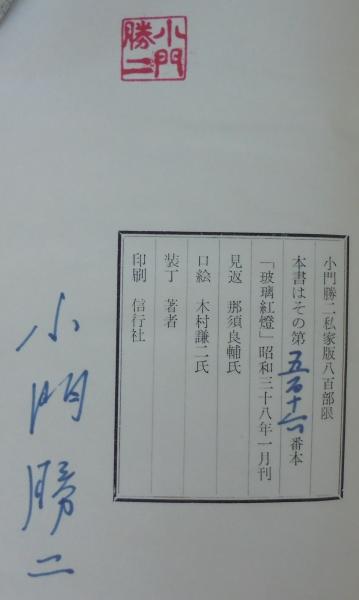 小門
勝二
小門勝二私家版八百部限
本書はその第五百十六番本
「玻璃紅燈」昭和三十八年一月刊
見返　那須良輔氏
口絵　木村謙二氏
装丁　著者
印刷　信行社
小門勝二